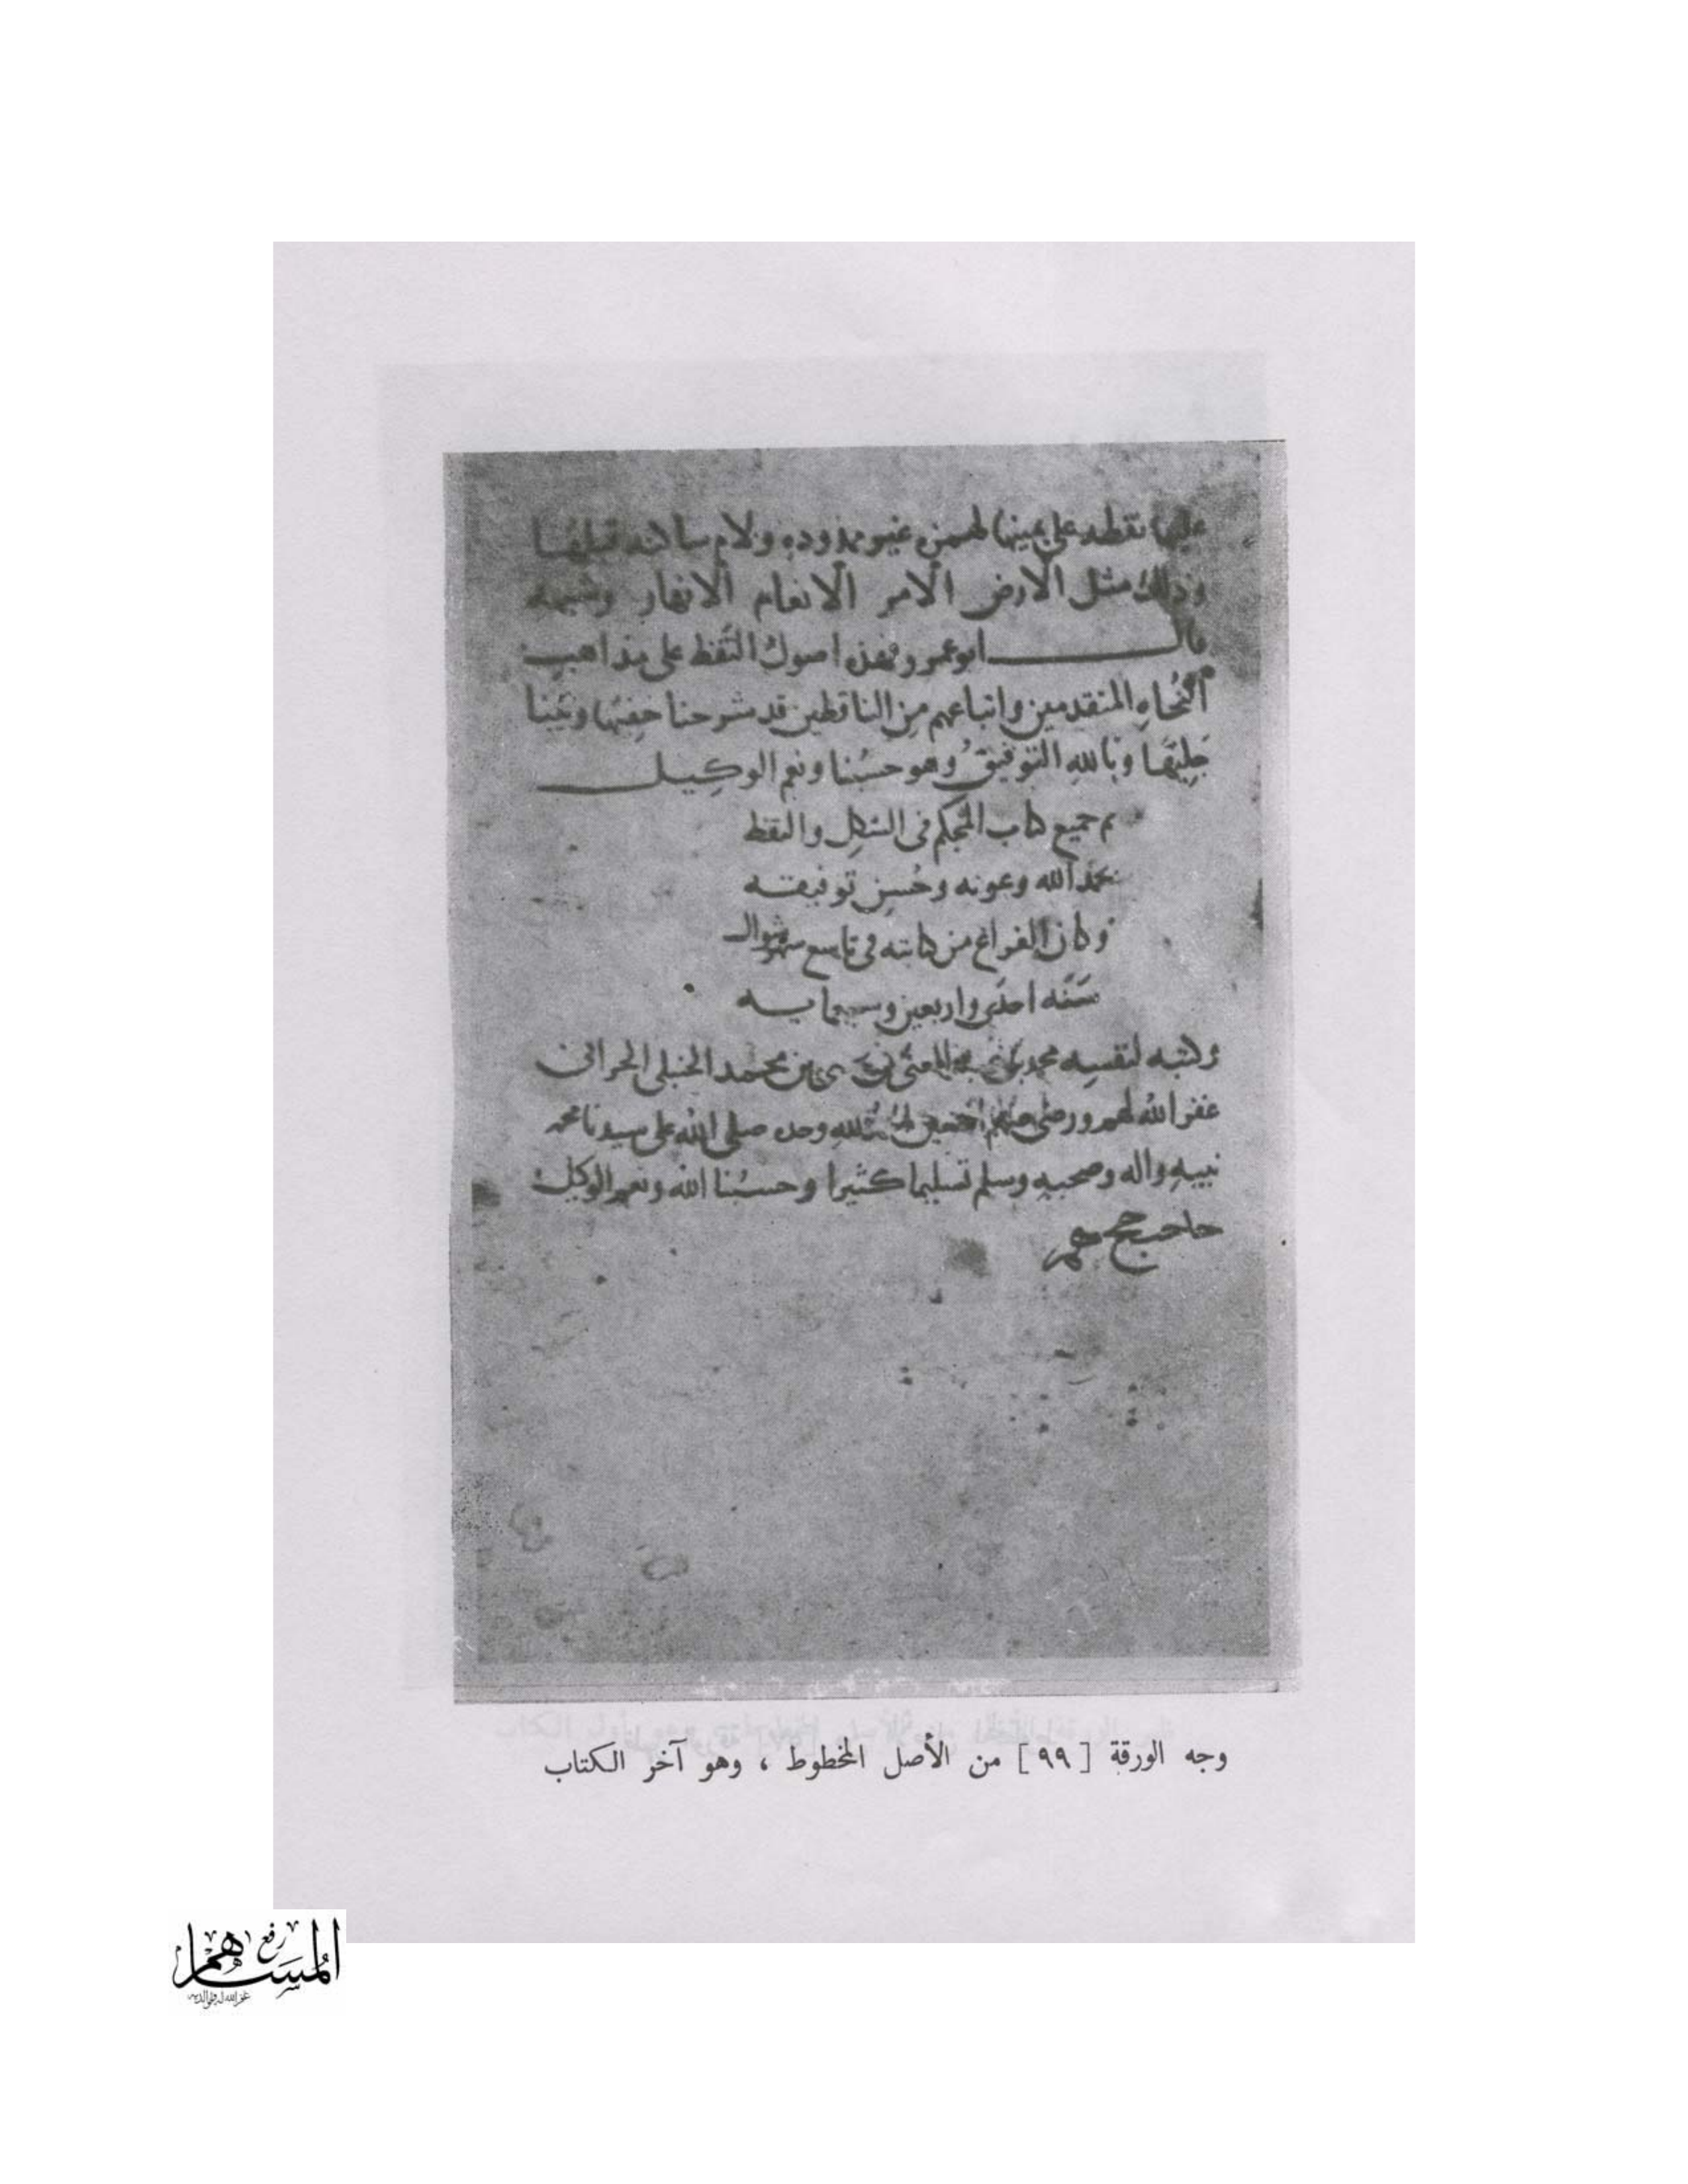 عليها نقطه على يمينها لهمزه غير ممدوده ولام ساكنه قبلها
وذلك مثل الارض الامر الانعام الانهار وشبهه
قال ابو عمرو فهذه اصول النقط على مذاهب
النُحاهِ المتقدمين واتباعهم مِن الناقطين قد شرحنا خفيها وبيّنا
جَلِيَّها وباللهِ التوفيقُ وهو حسبُنا ونعم الوكِيل
تم جميع كتاب المُحكم فى الشكل والنقط
بحمد الله وعونه وحُسن توفيقه
وكان الفراغ من كتابته فى تاسع شهر شوال
سَنَه احدى واربعين وسبعمايه
وكتبه لنفسه محمد بن محمد الحنبلى الحرانى
غفر الله لهم ورضى عنهم اجمعين لله وحده صلى الله على سيدنا محمد
نبيهِ واله وصحبهِ وسلم تسليما كثيرا وحسبُنا الله ونعم الوكيل
وجه الورقة [ ٩٩ ] من الأصل المخطوط ، وهو آخر الكتاب
رفع
المُسَاهم
غفر الله له ولوالديه